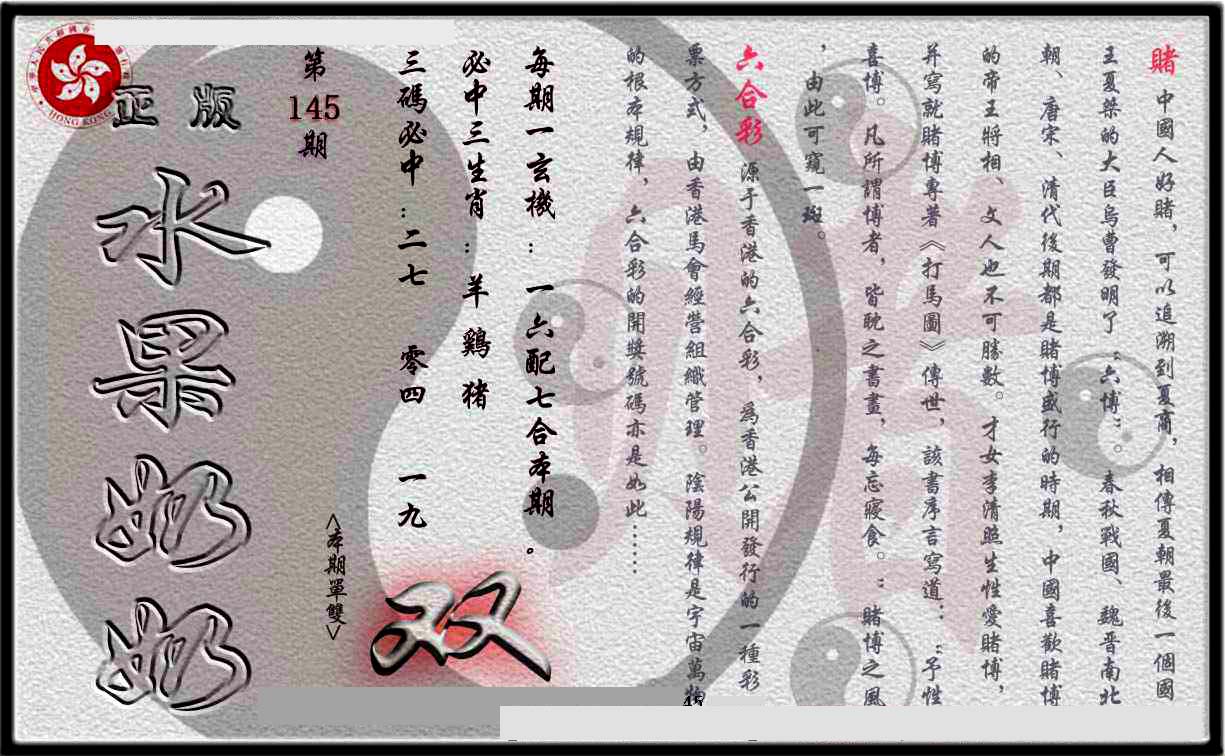 賭 中國人好賭，可以追溯到夏商，相傳夏朝最後一個國
王夏桀的大臣烏曹發明了“六博”。春秋戰國、魏晋南北
朝、唐宋、清代後期都是賭博盛行的時期，中國喜歡賭博
的帝王將相、文人也不可勝數。才女李清照生性愛賭博，
并寫就賭博專著《打馬圖》傳世，該書序言寫道：“予性
喜博。凡所謂博者，皆耽之書畫，每忘寢食。：賭博之風
，由此可窺一斑。
六合彩 源于香港的六合彩，為香港公開發行的一種彩
票方式，由香港馬會經營組織管理。陰陽規律是宇宙萬物
的根本規律，六合彩的開獎號碼亦是如此……
每期一玄機：一六配七合本期。
必中三生肖：羊 鷄 猪
三碼必中：二七 零四 一九
<本期單雙>
双
第
145
期
正版
水果奶奶
HONG KONG